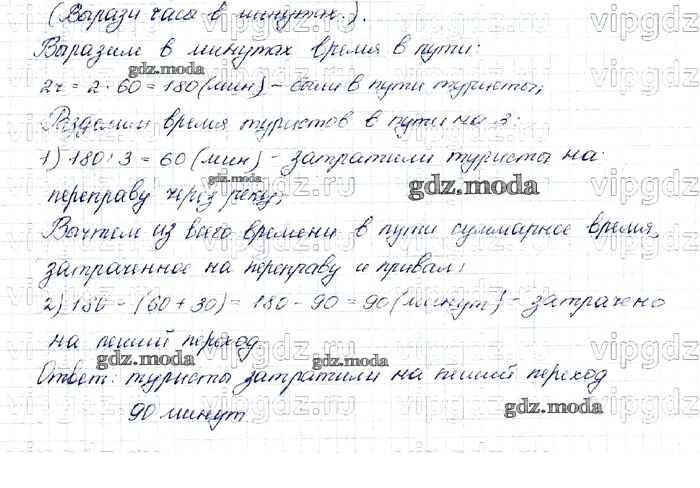 (Вырази часы в минутах.).
Выразим в минутах время в пути:
2ч = 2 · 60 = 180 (мин) - были в пути туристы;
Разделим время туристов в пути на 3:
1) 180 : 3 = 60 (мин) - затратили туристы на
переправу через реку;
Вычтем из всего времени в пути суммарное время,
затраченное на переправу и привал:
2) 180 - (60 + 30) = 180 - 90 = 90 (минут) - затрачено
на пеший переход.
Ответ: туристы затратили на пеший переход
90 минут.
gdz.moda
gdz.moda
gdz.moda
gdz.moda
gdz.moda
gdz.moda
vipgdz
vipgdz
vipgdz
vipgdz
vipgdz
vipgdz
vipgdz